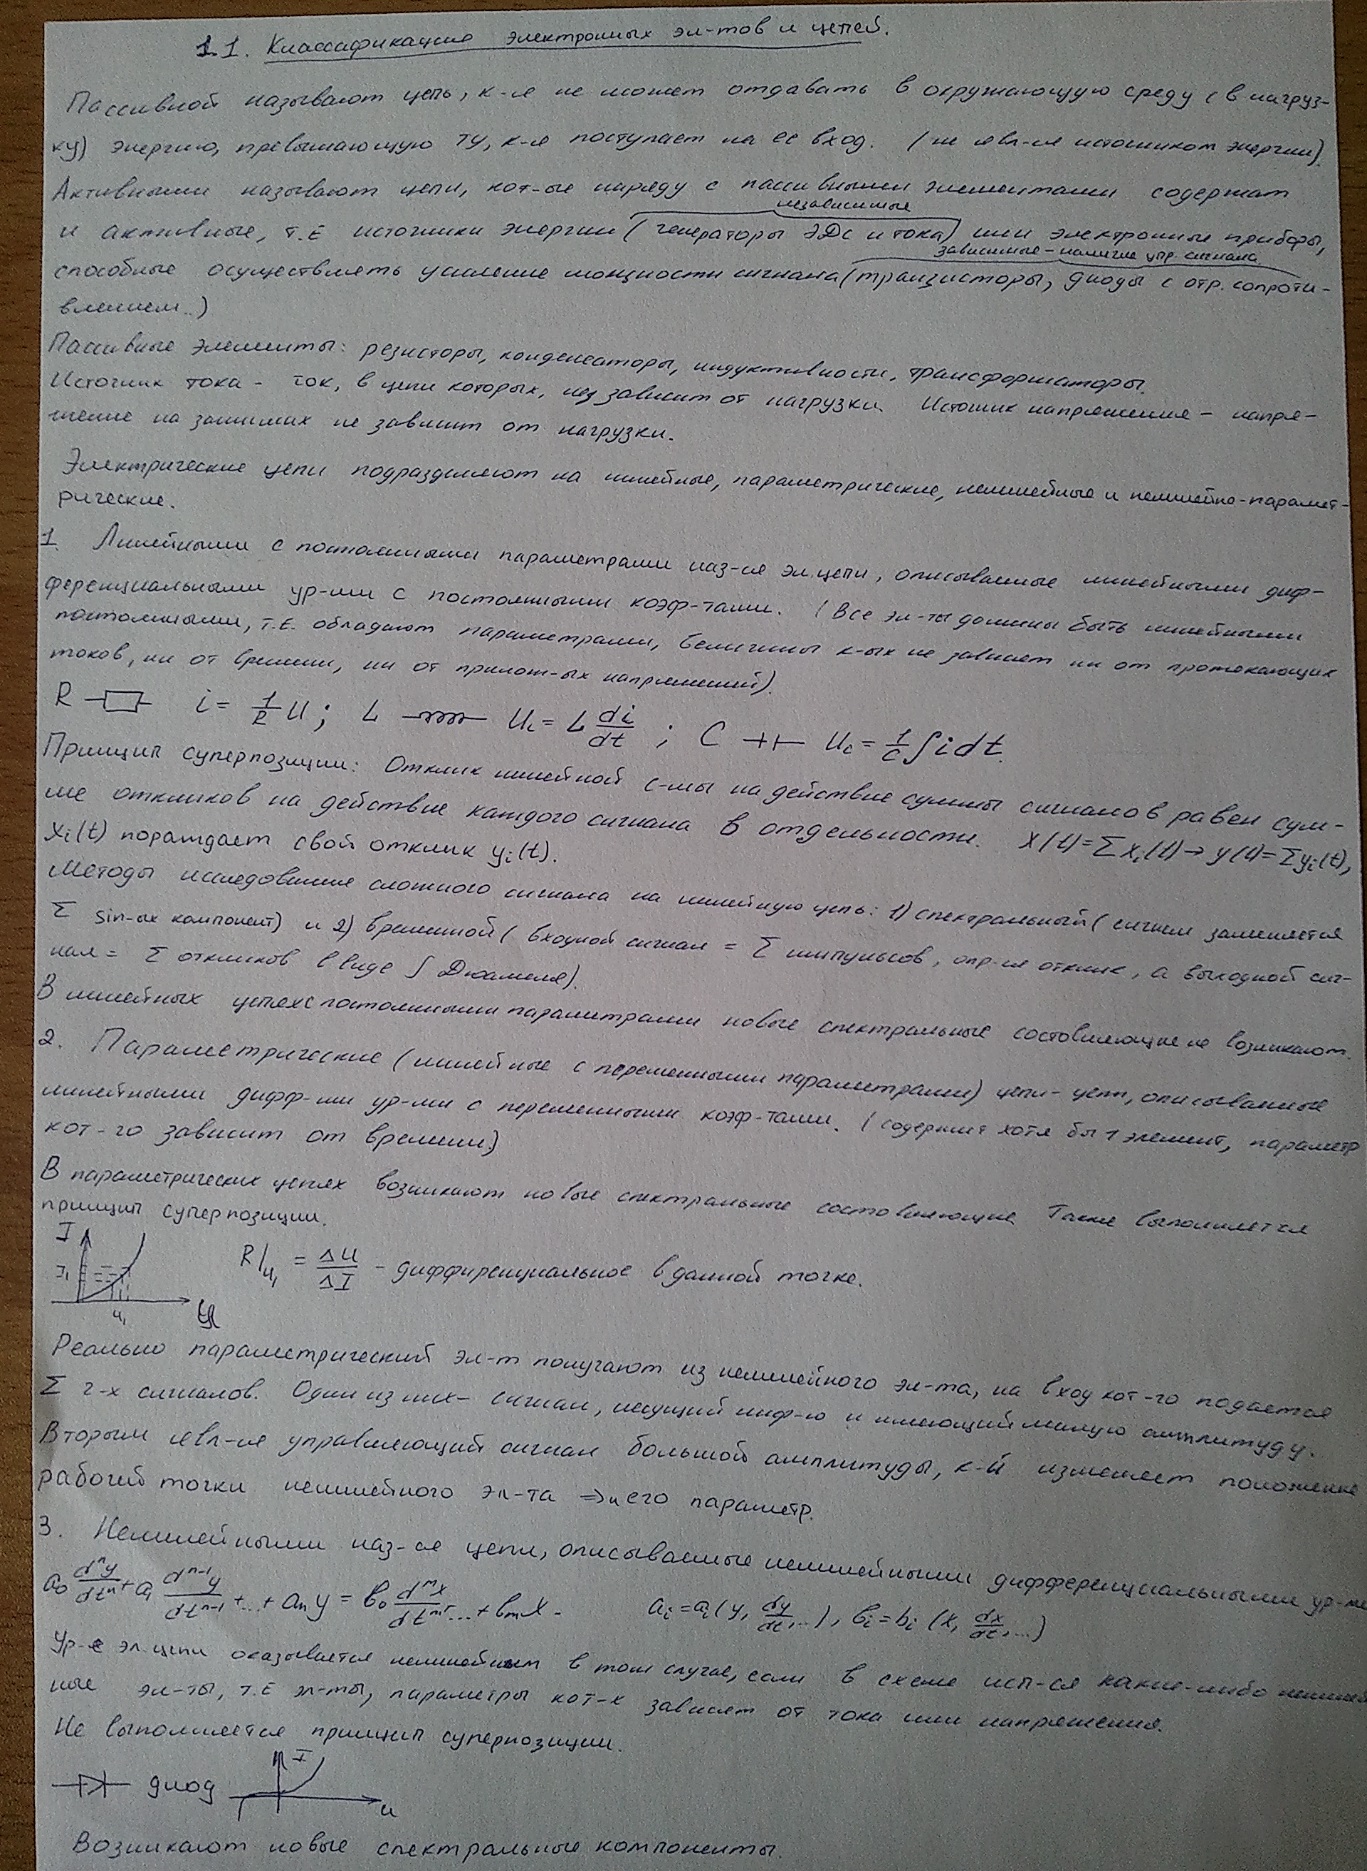 1.1. Классификация электронных эл-тов и цепей.
Пассивной называют цепь, к-я не может отдавать в окружающую среду (в нагруз-
ку) энергию, превышающую ту, к-я поступает на ее вход. (не явл-ся источником энергии).
Активными называют цепи, кот-ые наряду с пассивными элементами содержат
независимые
и активные, т.е источники энергии (генераторы ЭДС и тока) или электронные приборы,
зависимые - наличие упр. сигнала
способные осуществлять усиление мощности сигнала (транзисторы, диоды с отр. сопроти-
влением..)
Пассивные элементы: резисторы, конденсаторы, индуктивности, трансформаторы.
Источник тока - ток, в цепи которых, не зависит от нагрузки. Источник напряжения - напря-
жение на зажимах не зависит от нагрузки.
Электрические цепи подразделяют на линейные, параметрические, нелинейные и нелинейно-парамет-
рические.
1. Линейными с постоянными параметрами наз-ся эл.цепи, описываемые линейными диф-
ференциальными ур-ми с постоянными коэф-тами. (Все эл-ты должны быть линейными
постоянными, т.е. обладают параметрами, величины к-ых не зависят ни от протекающих
токов, ни от времени, ни от прилож-ых напряжений).
R i = 1/R U; L U_L = L di/dt ; C U_C = 1/C ∫ i dt.
Принцип суперпозиции: Отклик линейной с-мы на действие суммы сигналов равен сум-
ме откликов на действие каждого сигнала в отдельности. X(t) = Σ x_i(t) → y(t) = Σ y_i(t),
x_i(t) порождает свой отклик y_i(t).
Методы исследование сложного сигнала на линейную цепь: 1) спектральный (сигнал заменяется
Σ sin-ых компонент) и 2) временной (входной сигнал = Σ импульсов, опр-ся отклик, а выходной сиг-
нал = Σ откликов в виде ∫ Дюамеля).
В линейных цепях с постоянными параметрами новые спектральные составляющие не возникают.
2. Параметрические (линейные с переменными параметрами) цепи - цепи, описываемые
линейными дифф-ми ур-ми с переменными коэф-тами. (содержит хотя бы 1 элемент, параметр
кот-го зависит от времени.)
В параметрических цепях возникают новые спектральные составляющие. Также выполняется
принцип суперпозиции.
I I₁ U₁ U
R|u₁ = ΔU/ΔI - диффиренциальное в данной точке.
Реально параметрический эл-т получают из нелинейного эл-та, на вход кот-го подается
Σ 2-х сигналов. Один из них - сигнал, несущий инф-ю и имеющий малую амплитуду.
Вторым явл-ся управляющий сигнал большой амплитуды, к-й изменяет положение
рабочей точки нелинейного эл-та => и его параметр.
3. Нелинейными наз-ся цепи, описываемые нелинейными дифференциальными ур-ми
a₀ dⁿy/dtⁿ + a₁ dⁿ⁻¹y/dtⁿ⁻¹ + ... + aₙy = b₀ dᵐx/dtᵐ + ... + bₘx. a_i = a_i(y, dy/dt, ...), b_i = b_i (x, dx/dt, ...)
Ур-е эл.цепи оказывается нелинейным в том случае, если в схеме исп-ся какие-либо нелиней
ные эл-ты, т.е эл-ты, параметры кот-х зависят от тока или напряжения.
Не выполняется принцип суперпозиции.
диод I u
Возникают новые спектральные компоненты.